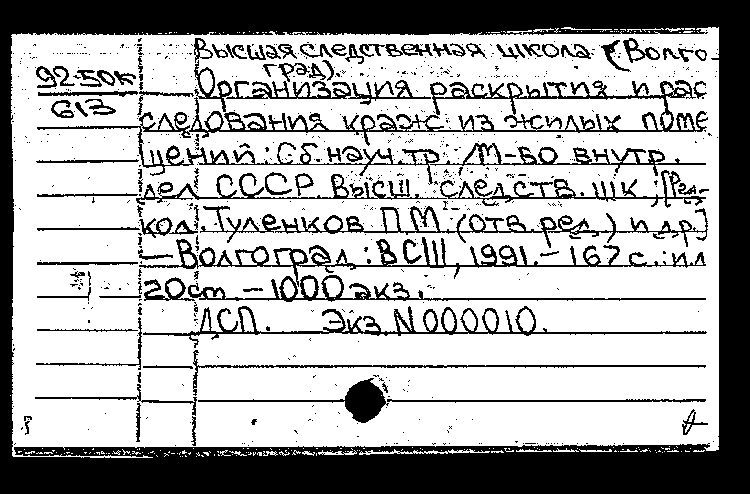 Высшая следственная школа (Волго-
град).
92-50к
613
Организация раскрытия и рас
следования краж из жилых поме
щений: Сб. науч. тр. / М-во внутр.
дел СССР. Высш. следств. шк.; [Ред-
кол. Туленков П.М. (отв. ред.) и др.]
— Волгоград: ВСШ, 1991. – 167 с.: ил
20 см. – 1000 экз.
ДСП. Экз. N 000010.